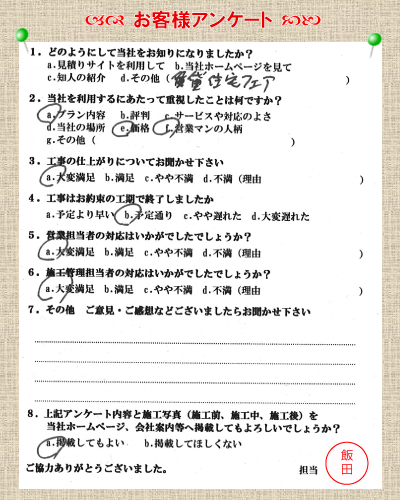 お客様アンケート
1．どのようにして当社をお知りになりましたか？
a.見積りサイトを利用して b.当社ホームページを見て
c.知人の紹介 d.その他（賃貸住宅フェア ）
2．当社を利用するにあたって重視したことは何ですか？
a.プラン内容 b.評判 c.サービスや対応のよさ
d.当社の場所 e.価格 f.営業マンの人柄
g.その他（ ）
3．工事の仕上がりについてお聞かせ下さい
a.大変満足 b.満足 c.やや不満 d.不満（理由 ）
4．工事はお約束の工期で終了しましたか
a.予定より早い b.予定通り c.やや遅れた d.大変遅れた
5．営業担当者の対応はいかがでしたでしょうか？
a.大変満足 b.満足 c.やや不満 d.不満（理由 ）
6．施工管理担当者の対応はいかがでしたでしょうか？
a.大変満足 b.満足 c.やや不満 d.不満（理由 ）
7．その他 ご意見・ご感想などございましたらお聞かせ下さい
8．上記アンケート内容と施工写真（施工前、施工中、施工後）を
当社ホームページ、会社案内等へ掲載してもよろしいでしょうか？
a.掲載してもよい b.掲載してほしくない
ご協力ありがとうございました。 担当 飯田